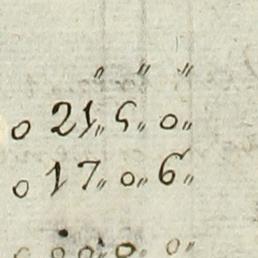 〃 〃 〃
0 21〃 5〃 0〃
0 17〃 0〃 6〃